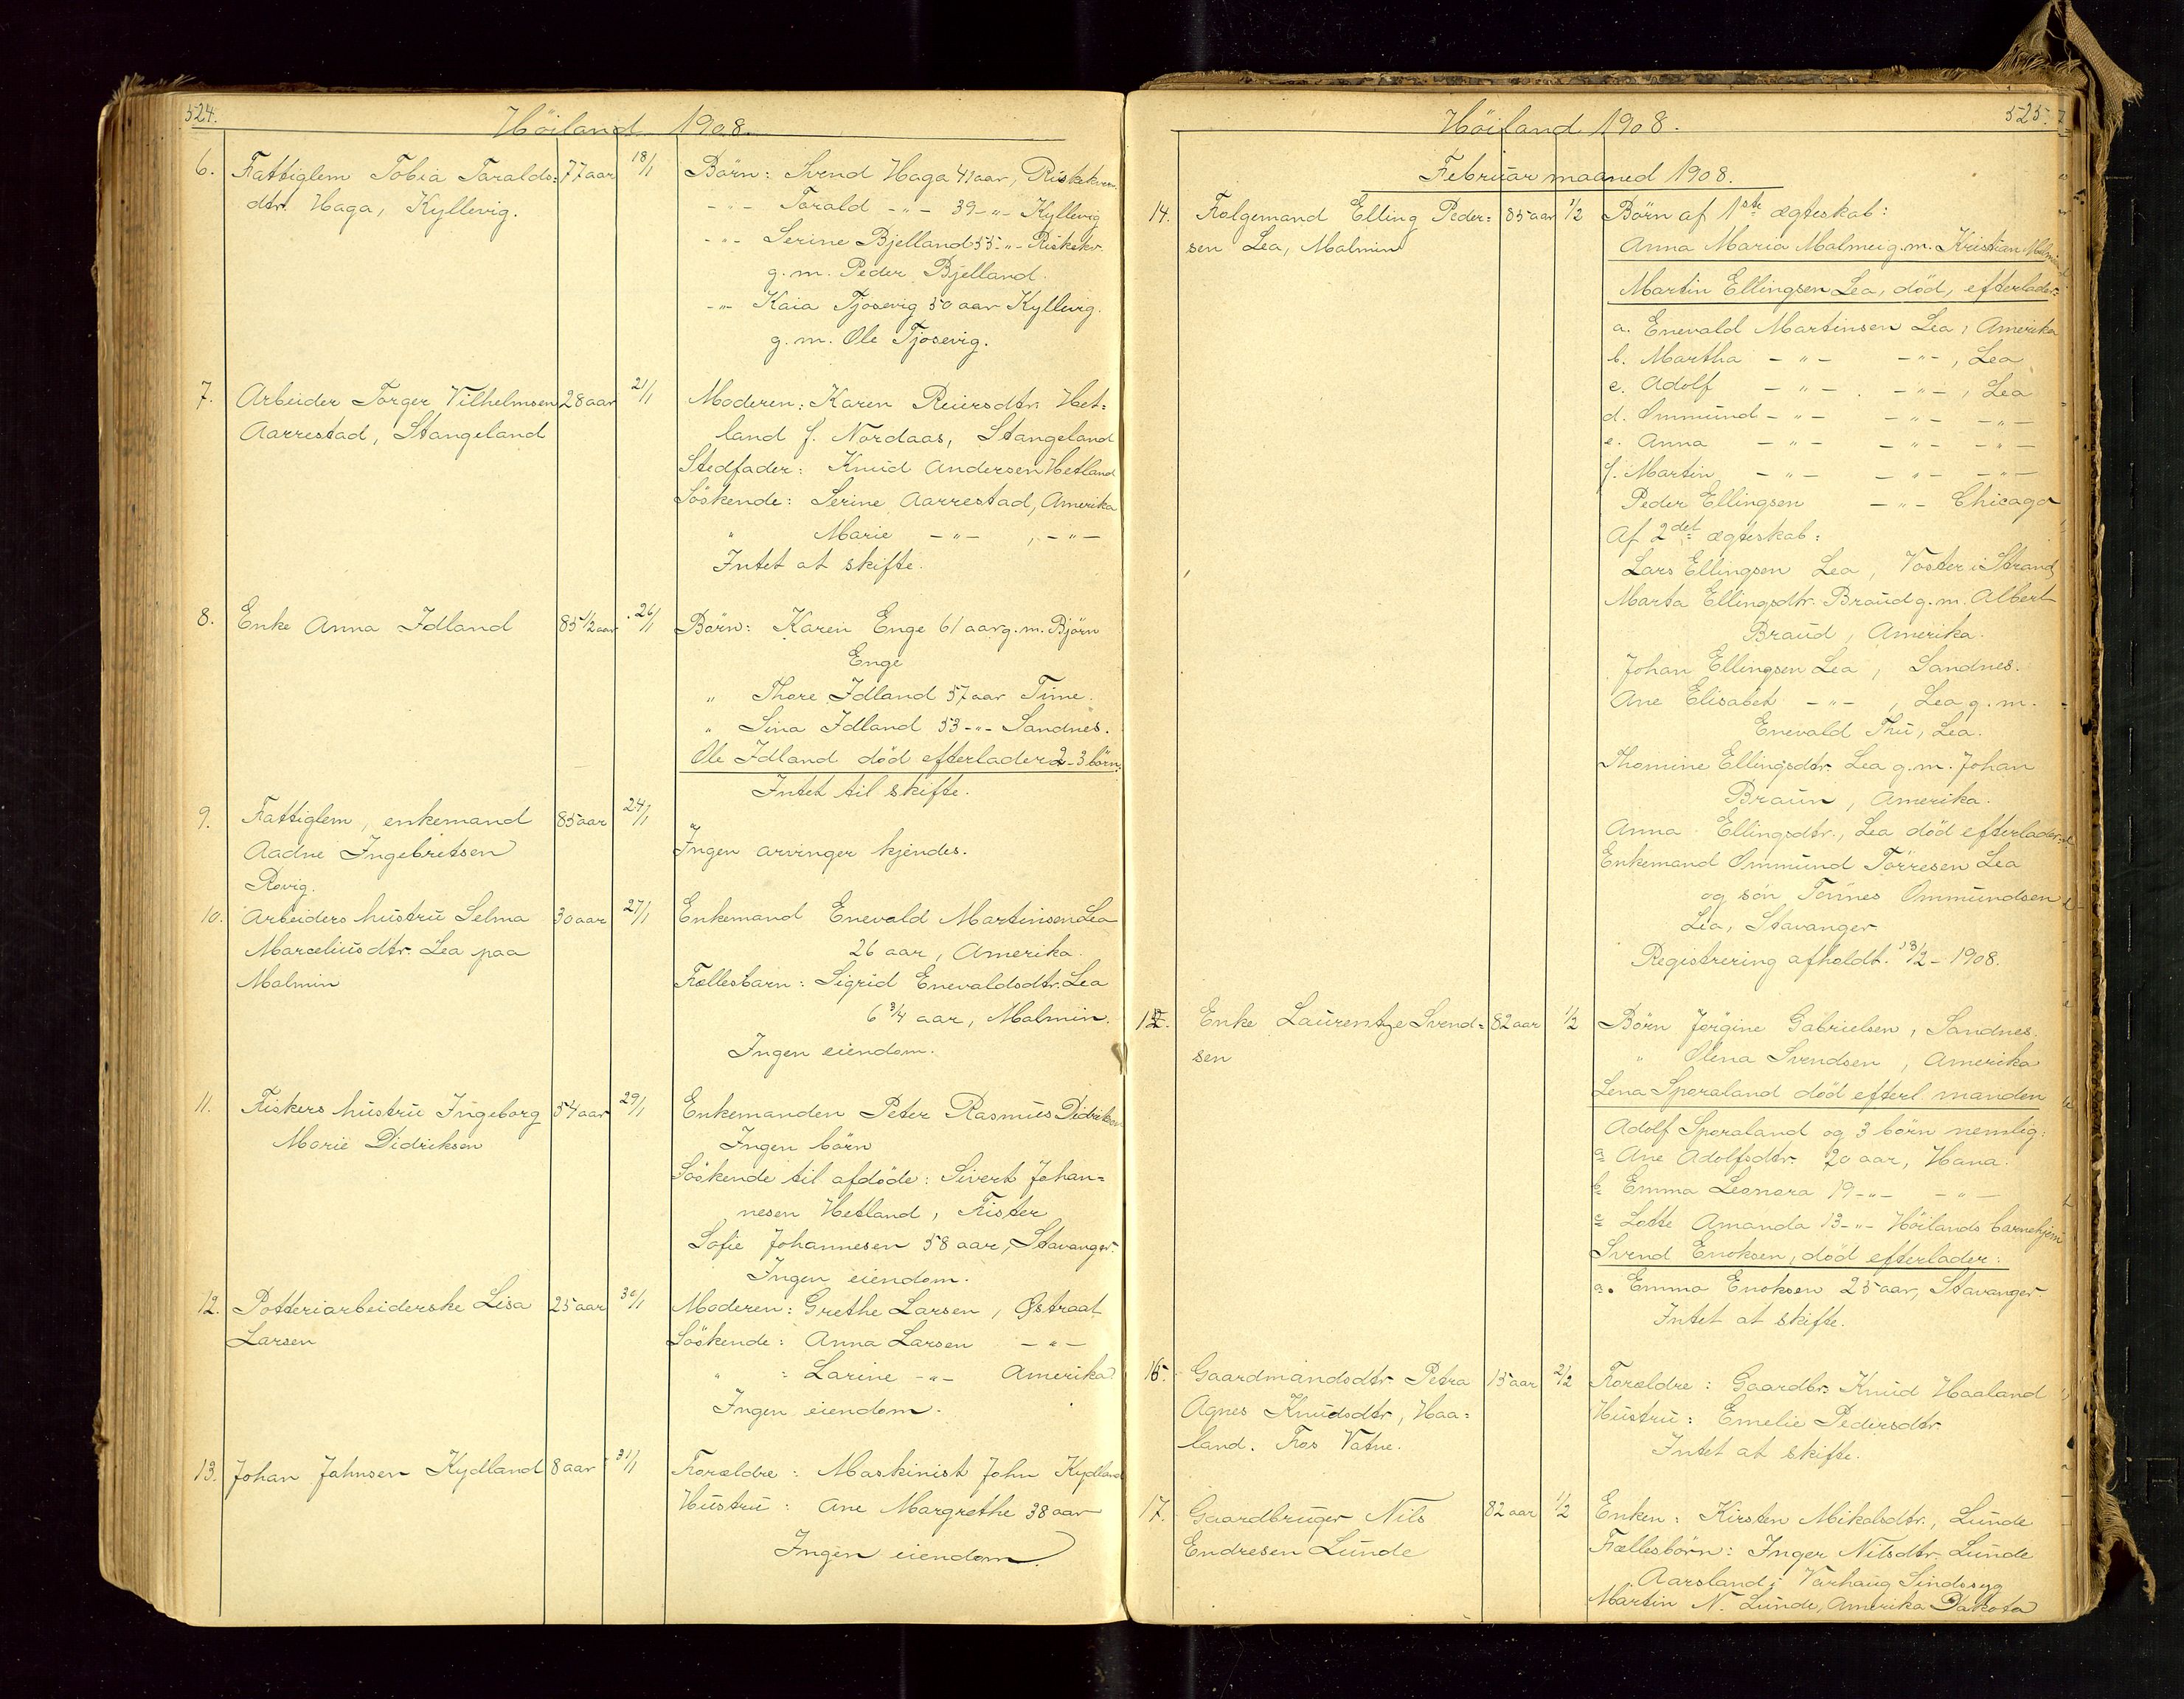 524.
Höiland 1908.
6. Fattiglem Tobia Taralds= 77 aar 18/1 Börn: Svend Haga 41 aar, Riskekverv.
dtr. Haga, Kyllevig. -"- Tarald -"- 39 -"- Kyllevig
-"- Serine Bjelland 55 -"- Riskekv.
g.m. Peder Bjelland.
-"- Kaia Tjosevig 50 aar Kyllevig.
g.m. Ole Tjosevig.
7. Arbeider Torger Vilhelmsen 28 aar 21/1 Moderen: Karen Reiersdtr. Het=
Aarrestad, Stangeland land f. Nordaas, Stangeland
Stedfader: Knud Andersen Hetland
Söskende: Serine Aarrestad, Amerika
" Marie -"- , -"-
Intet at skifte.
8. Enke Anna Idland 85 1/2 aar 26/1 Börn: Karen Enge 61 aar g.m. Björn
Enge
" Thore Idland 57 aar Time.
" Sina Idland 53 -"- Sandnes.
Ole Idland död efterlader 2-3 börn.
Intet til skifte.
9. Fattiglem, enkemand 85 aar 24/1
Aadne Ingebretsen Ingen arvinger kjendes.
Rovig.
10. Arbeiders hustru Selma 30 aar 27/1 Enkemand Enevald Martinsen Lea
Marceliusdtr. Lea paa 26 aar, Amerika.
Malmin Fællesbarn: Sigrid Enevaldsdtr. Lea
6 3/4 aar, Malmin.
Ingen eiendom.
11. Fiskers hustru Ingeborg 54 aar 29/1 Enkemanden Peter Rasmus Didriksen
Marie Didriksen Ingen börn
Söskende til afdöde: Sivert Johan=
nesen Hetland, Fister
Sofie Johannesen 58 aar, Stavanger.
Ingen eiendom.
12. Potteriarbeiderske Lisa 25 aar 30/1 Moderen: Grethe Larsen, Østraat
Larsen Söskende: Anna Larsen -"-
" : Larine -"- Amerika
Ingen eiendom.
13. Johan Johnsen Kydland 8 aar 31/1 Forældre: Maskinist John Kydland
Hustru: Ane Margrethe 38 aar
Ingen eiendom.
525.
Höiland 1908.
Februar maaned 1908.
14. Følgemand Elling Peder= 85 aar 1/2 Börn af 1ste ægteskab:
sen Lea, Malmin Anna Maria Malmei g.m. Kristian Malmin
Martin Ellingsen Lea, död, efterlader:
a. Enevald Martinsen Lea, Amerika
b. Martha -"- -"-, Lea
c. Adolf -"- -"-, Lea
d. Ommund -"- -"- -"-
e. Anna -"- -"- -"-
f. Martin -"- -"- -"-
Peder Ellingsen -"- Chicago
Af 2det ægteskab:
Lars Ellingsen Lea, Voster i Strand
Marta Ellingsdtr. Braud g.m. Albert
Braud, Amerika.
Johan Ellingsen Lea, Sandnes.
Ane Elisabet -"-, Lea g.m.
Enevald Thu, Lea.
Thomine Ellingsdtr. Lea g.m. Johan
Braun, Amerika.
Anna Ellingsdtr., Lea död efterlader:
Enkemand Ommund Törresen Lea
og sön Tönnes Ommundsen
Lea, Stavanger
Registrering afholdt. 13/2 - 1908.
15. Enke Laurentze Svend= 82 aar 1/2 Börn Jörgine Gabrielsen, Sandnes.
sen " Olena Svendsen, Amerika
Lena Sporaland död efterl. manden
Adolf Sporaland og 3 börn nemlig:
a Ane Adolfsdtr. 20 aar, Hana.
b Emma Leonora 19 -"- -"-
c Lotte Amanda 13 -"- Höilands barnehjem
Svend Enoksen, död efterlader:
a. Emma Enoksen 25 aar, Stavanger.
Intet at skifte.
16. Gaardmandsdtr. Petra 15 aar 2/2 Forældre: Gaardbr. Knud Haaland
Agnes Knudsdtr, Haa= Hustru: Emelie Pedersdtr.
land. Fos Vatne. Intet at skifte.
17. Gaardbruger Nils 82 aar 1/2 Enken: Kirsten Mikalsdtr., Lunde
Endresen Lunde Fællesbörn: Inger Nilsdtr. Lunde
Aarsland, Varhaug Sindssyg
Martin N. Lunde, Amerika Dakota